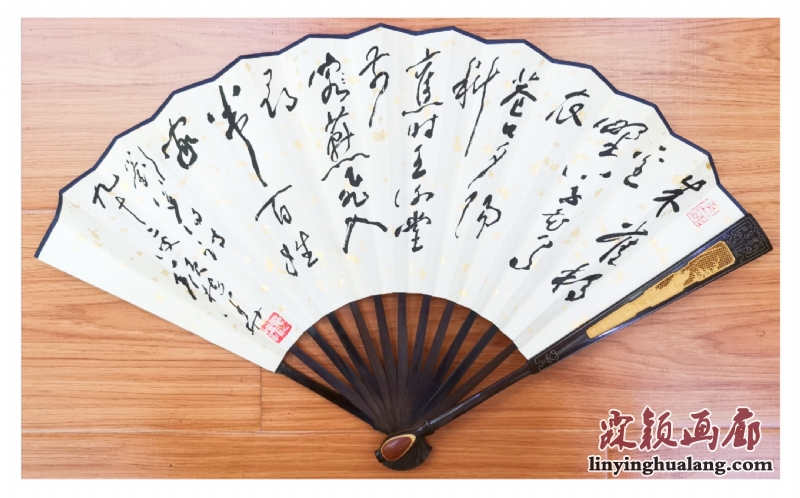 朱雀桥
边
野草花乌
衣
巷口夕阳
斜
舊时王谢堂
前
燕飞入
寻
常百姓
家
刘禹锡诗
九十
霖颖画廊
linyinghualang.com